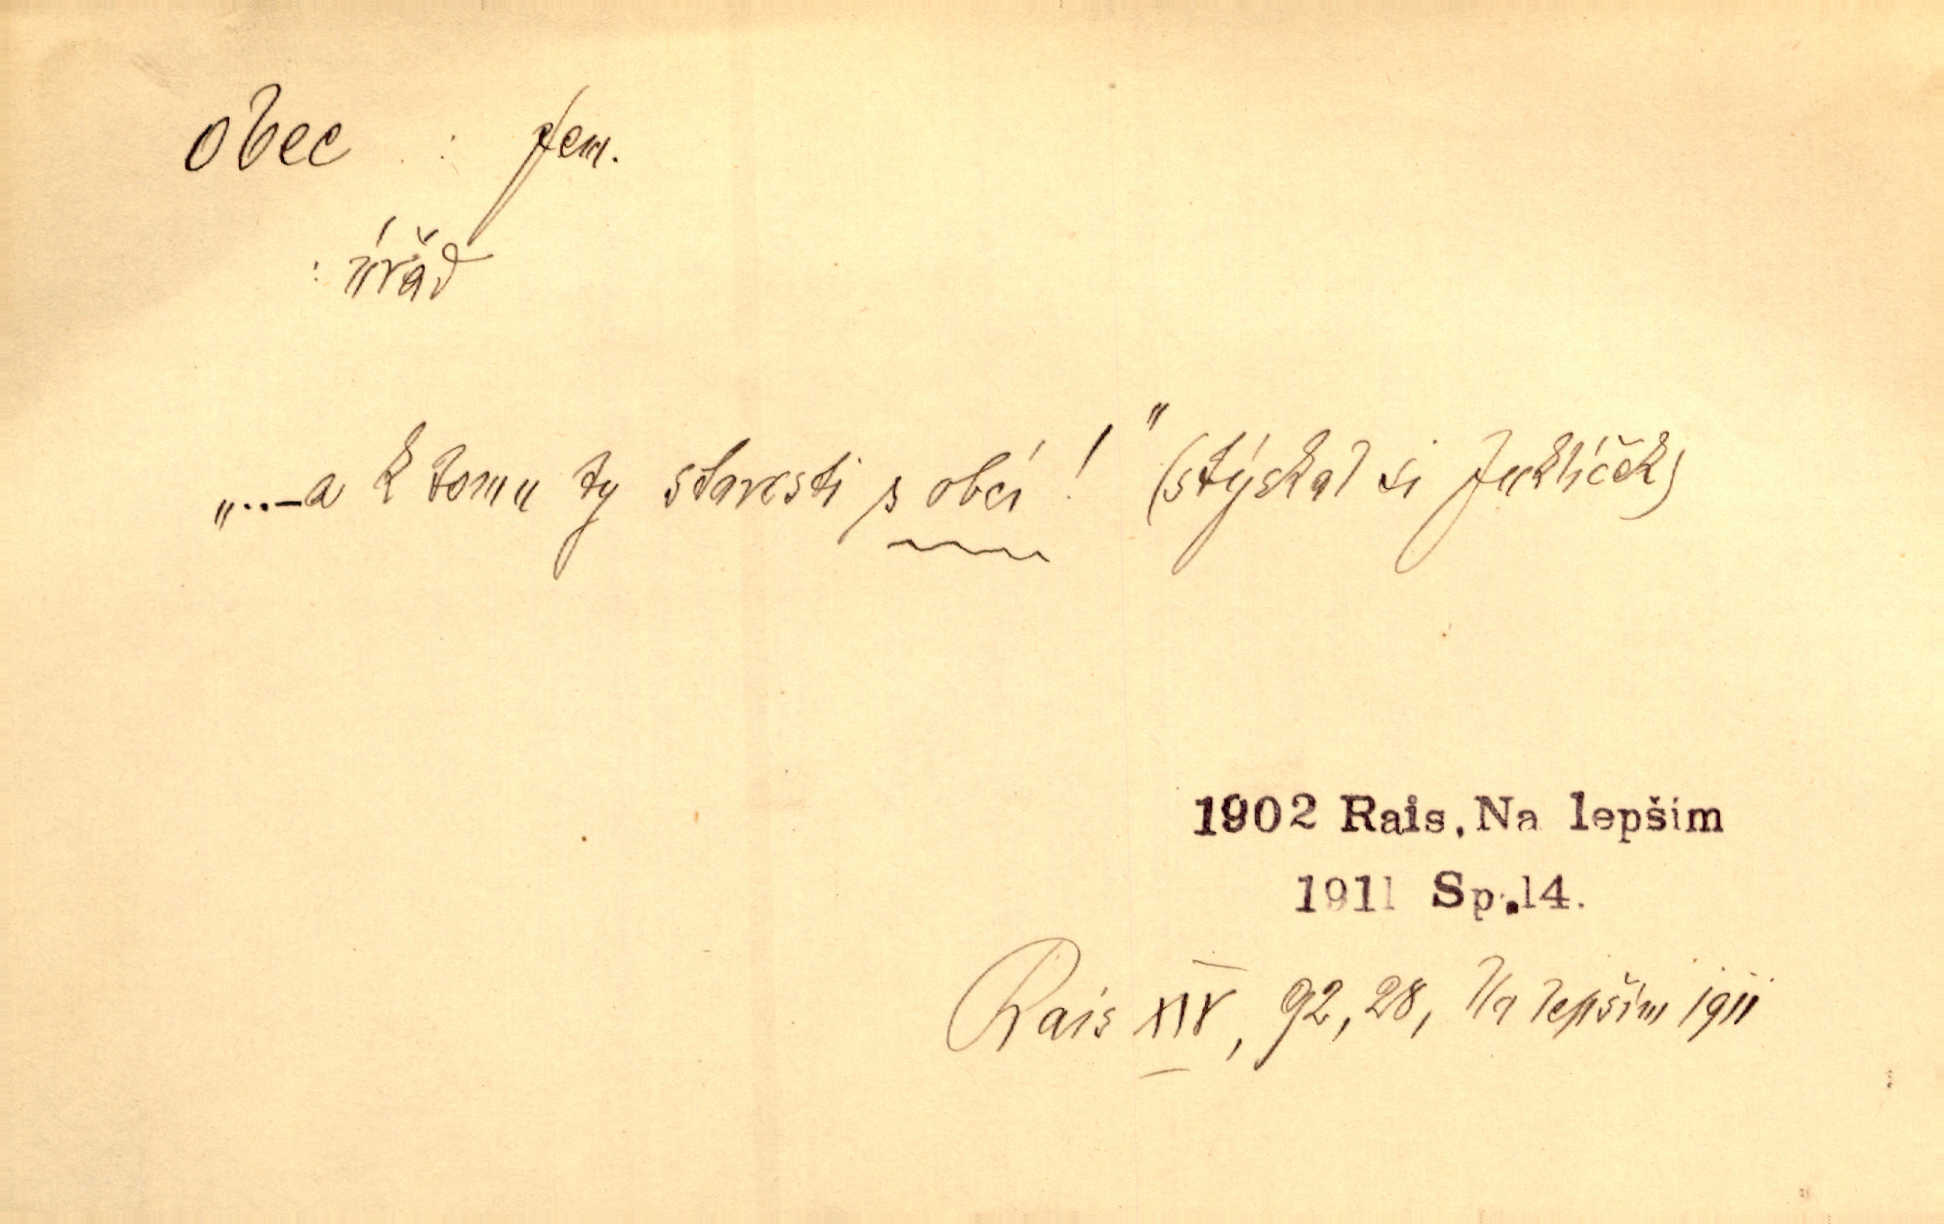 obec : fem.
: úřad
„..–a k tomu ty starosti s obcí!" (stýskal si Juklíček)
1902 Rais, Na lepším
1911 Sp.14.
Rais XIV, 92, 28, Na lepším 1911